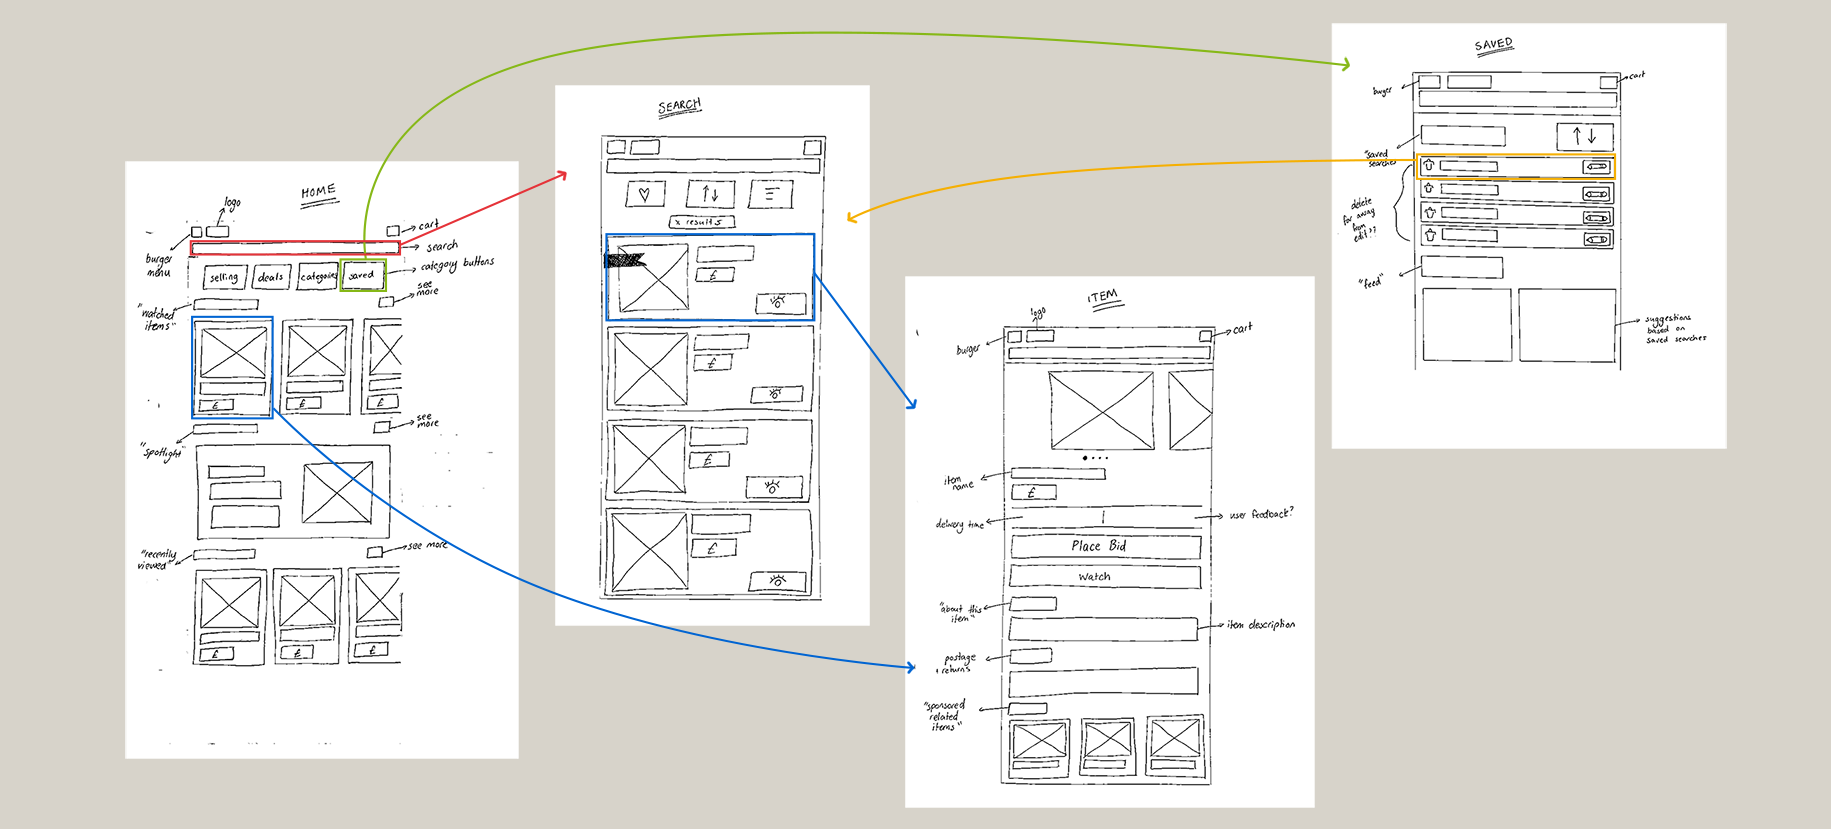 HOME
logo
cart
search
burger
menu
selling
deals
categories
saved
category buttons
see
more
"watched
items"
£
£
£
see
more
"spotlight"
see more
"recently
viewed"
£
£
£
SEARCH
x results
£
£
£
£
ITEM
logo
cart
burger
item
name
£
delivery time
user feedback?
Place Bid
Watch
"about this
item"
item description
postage
+ returns
"sponsored
related
items"
SAVED
burger
cart
"saved
searches"
delete
far away
from
edit??
"feed"
suggestions
based on
saved searches